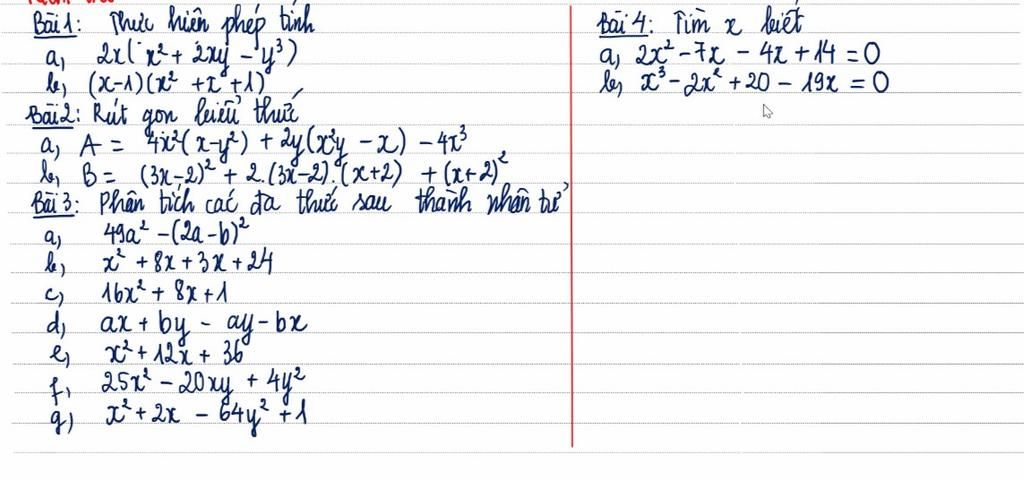 Bài 1: Thực hiện phép tính
a, 2x(x² + 2xy - y³)
b, (x-1)(x² + x + 1)
Bài 2: Rút gọn biểu thức
a, A = 4x²(x-y²) + 2y(x²y - x) - 4x³
b, B = (3x-2)² + 2.(3x-2).(x+2) + (x+2)²
Bài 3: Phân tích các đa thức sau thành nhân tử
a, 49a² - (2a-b)²
b, x² + 8x + 3x + 24
c, 16x² + 8x + 1
d, ax + by - ay - bx
e, x² + 12x + 36
f, 25x² - 20xy + 4y²
g) x² + 2x - 64y² + 1
Bài 4: Tìm x biết
a, 2x² - 7x - 4x + 14 = 0
b, x³ - 2x² + 20 - 19x = 0